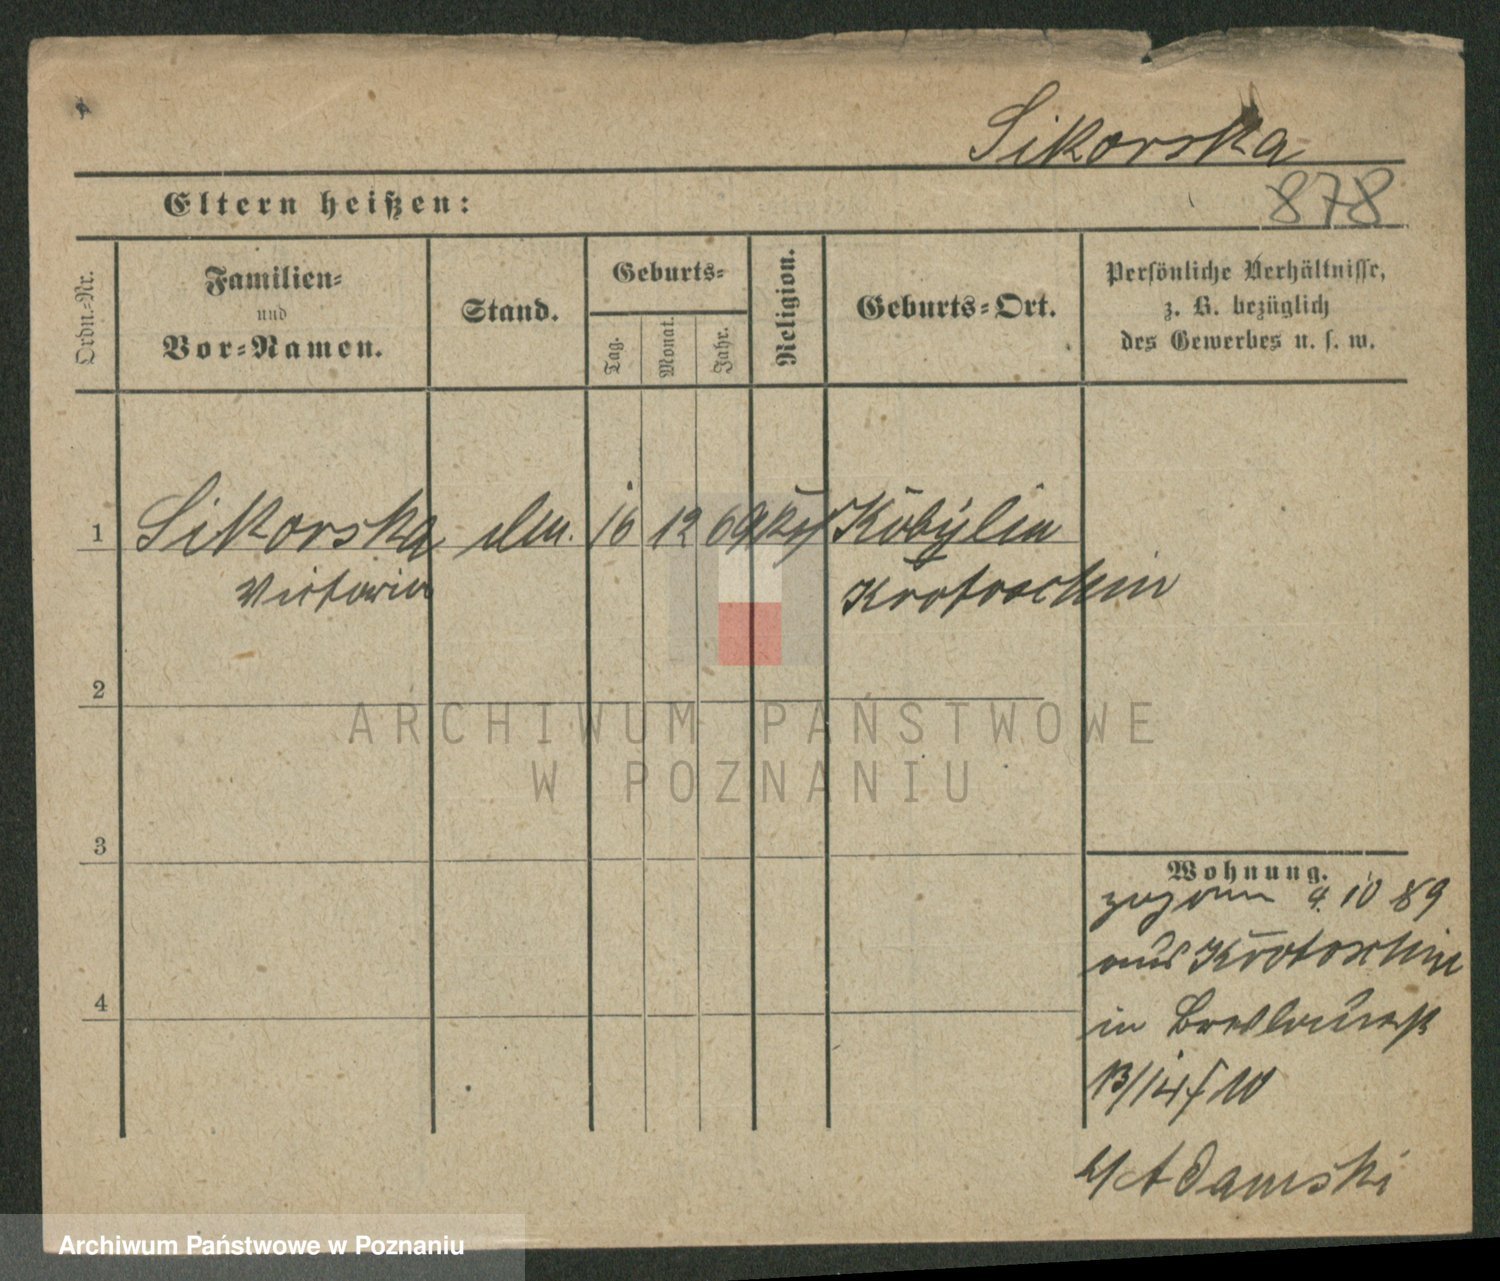 Sikorska
878
Eltern heißen:
Ordn.-Nr.
Familien-
und
Vor-Namen.
Stand.
Geburts-
Tag.
Monat.
Jahr.
Religion.
Geburts-Ort.
Persönliche Verhältnisse,
z. B. bezüglich
des Gewerbes u. s. w.
1 Sikorska 16 12 69 Kobylin
Victoria Krotoschin
2
ARCHIWUM PAŃSTWOWE
W POZNANIU
3
Wohnung.
10 89
4
aus Krotoschin
in Breslauerst
13/14
Adamski
Archiwum Państwowe w Poznaniu